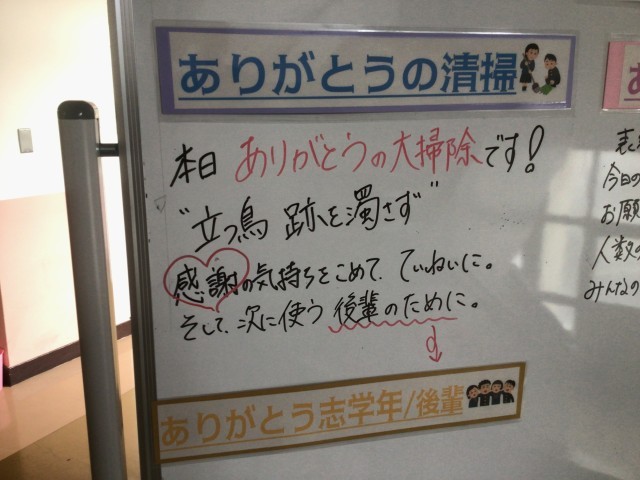 ありがとうの清掃
本日 ありがとうの大掃除です!
"立つ鳥 跡を濁さず"
感謝の気持ちをこめて、ていねいに。
そして、次に使う 後輩のために。
ありがとう志学年/後輩
今日の
お願
人数の
みんなの